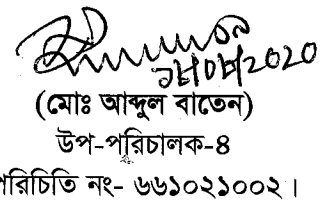 ১৮০৮২০২০
(মোঃ আব্দুল বাতেন)
উপ-পরিচালক-৪
পরিচিতি নং- ৬৬১০২১০০২।